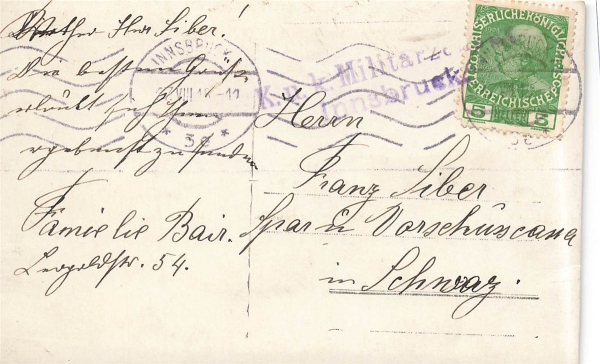 Werther Herr Siber!
Die besten Grüße
erlaubt sich Ihnen
ergebenst zu senden
Familie Bair.
Leopoldstr. 54.
INNSBRUCK
VIII
* 3e *
K. u. k. Militärze
Innsbruck
KAISERLICHE KÖNIGLICHE
ÖSTERREICHISCHE POST
5 5
Herrn
Franz Siber
Spar u Vorschusscassa
in Schwaz.